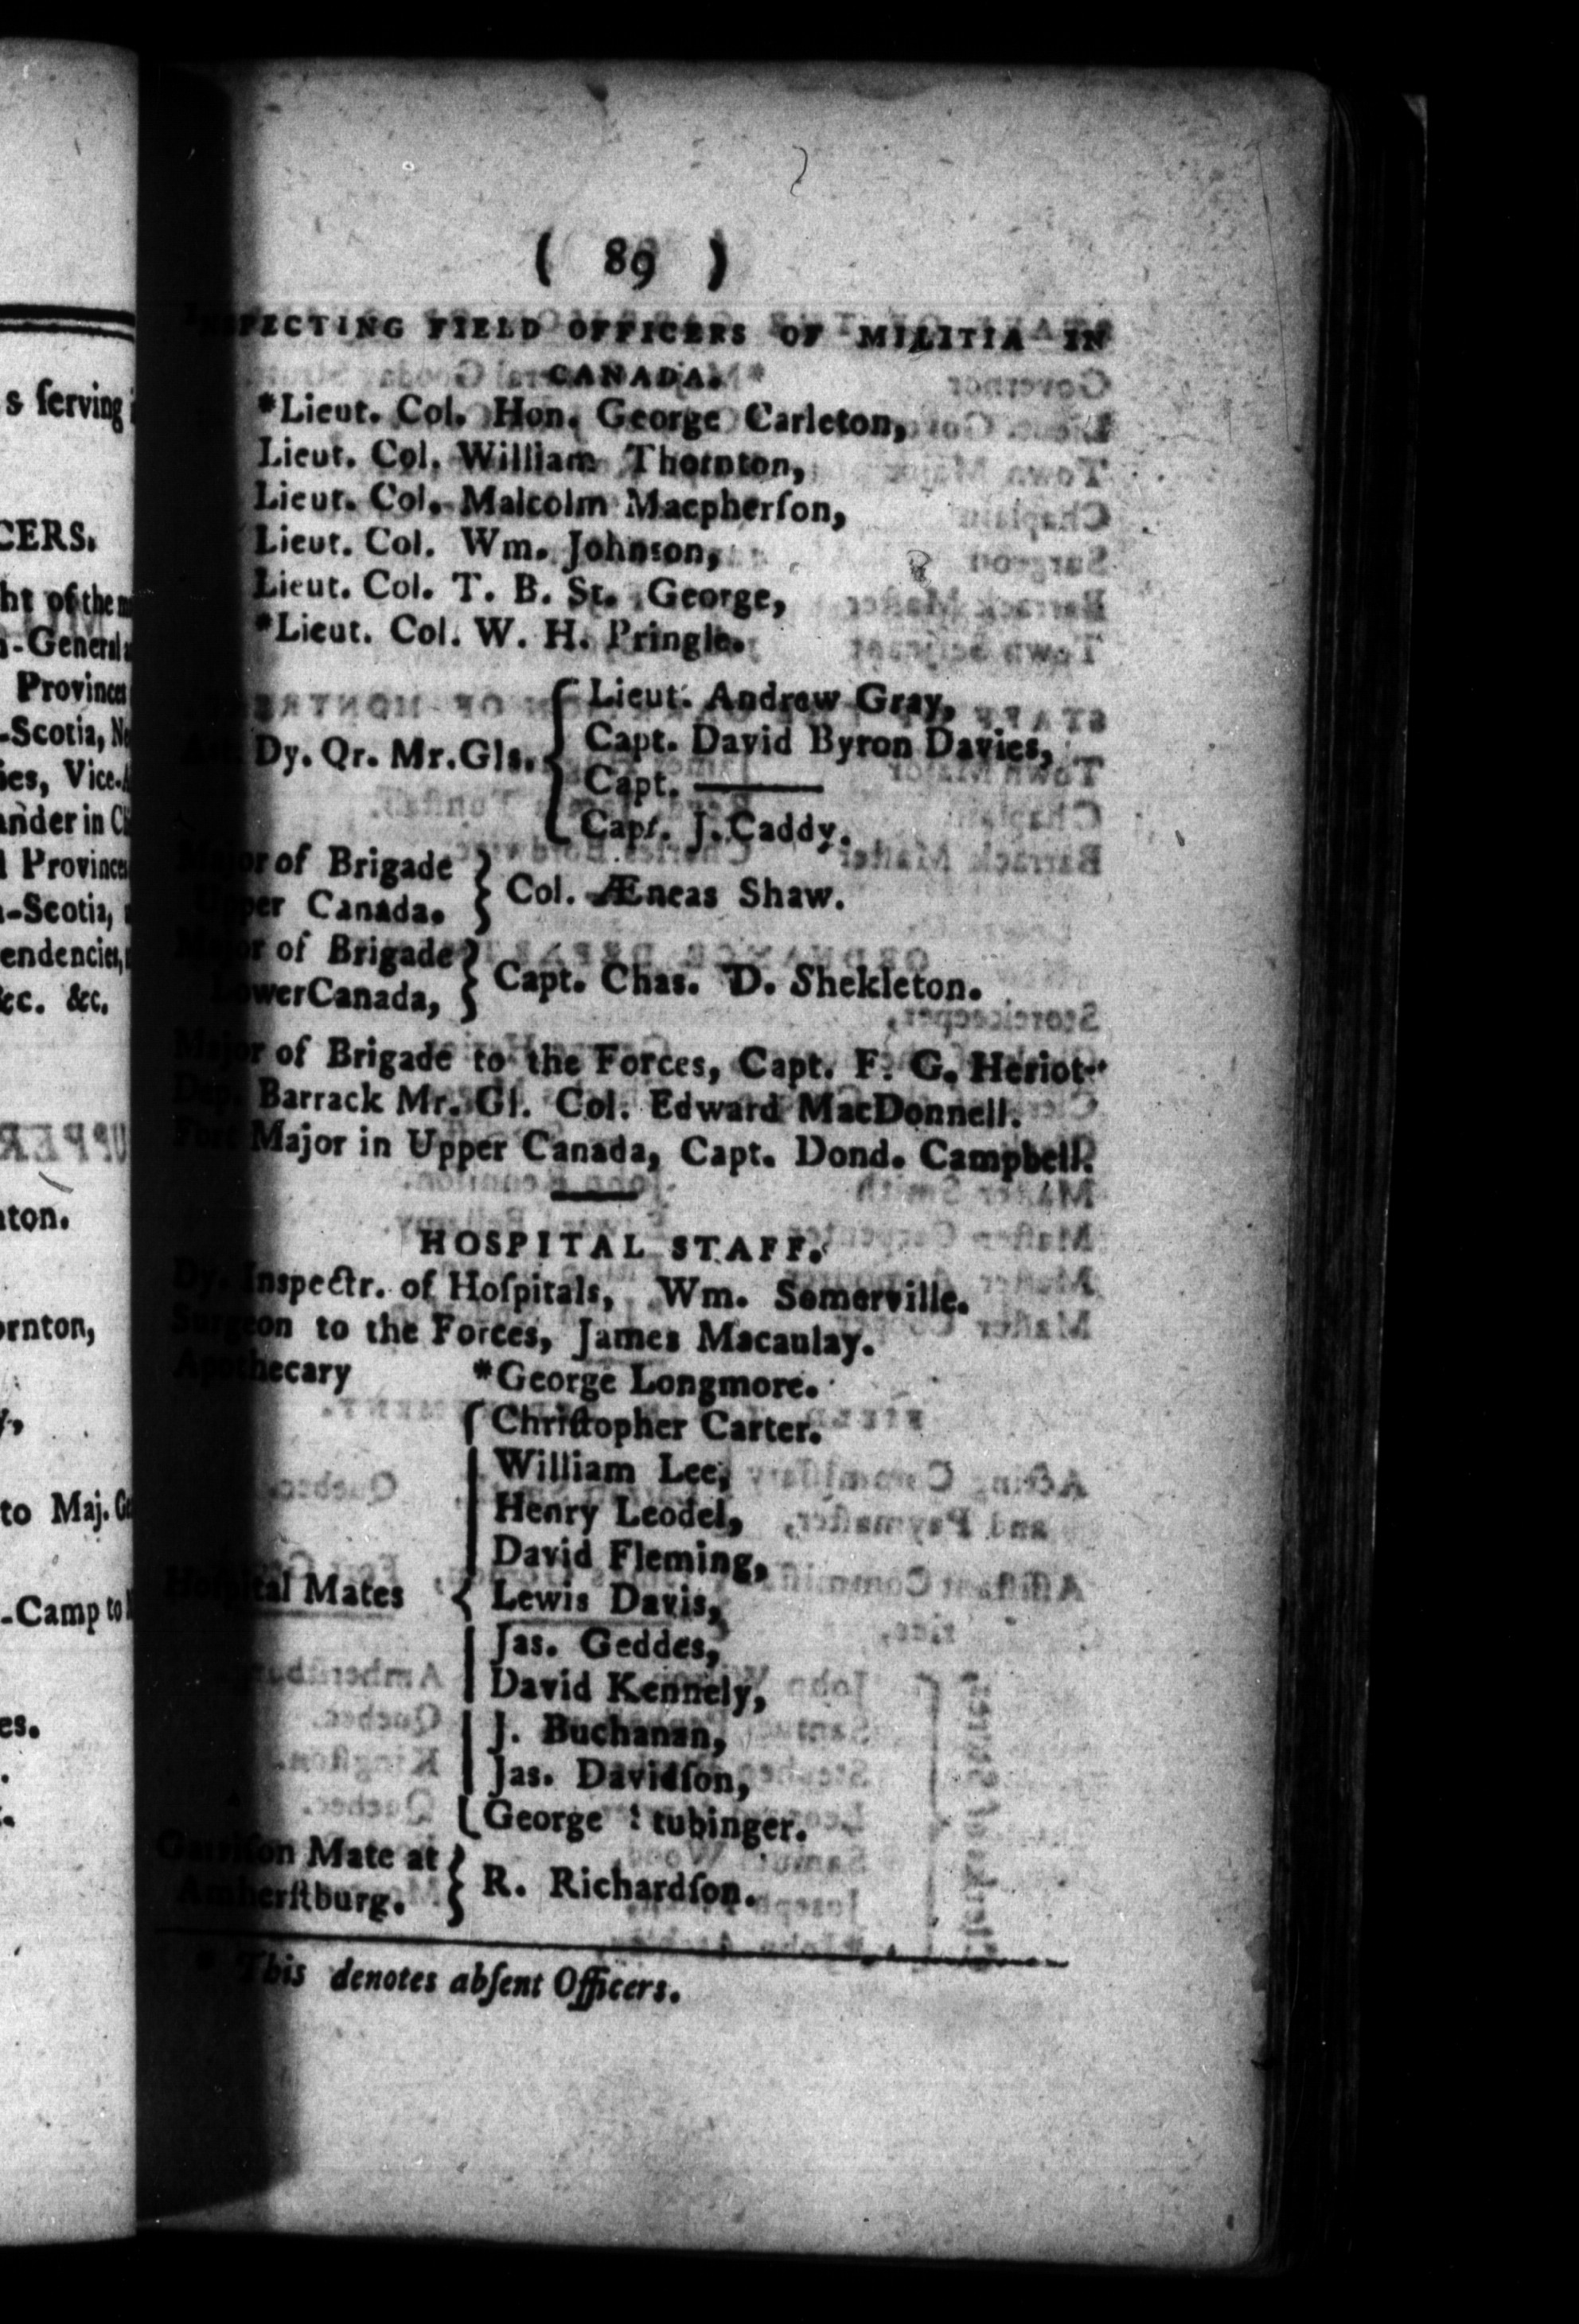 ( 89 )
INSPECTING FIELD OFFICERS OF MILITIA IN
CANADA.
*Lieut. Col. Hon. George Carleton,
Lieut. Col. William Thornton,
Lieut. Col. Malcolm Macpherſon,
Lieut. Col. Wm. Johnson,
Lieut. Col. T. B. St. George,
*Lieut. Col. W. H. Pringle.
Dy. Qr. Mr. Gls. { Lieut. Andrew Gray,
Capt. David Byron Davies,
Capt. ———
Capt. J. Caddy.
Major of Brigade
Upper Canada. } Col. Æneas Shaw.
Major of Brigade
Lower Canada, } Capt. Chas. D. Shekleton.
Major of Brigade to the Forces, Capt. F. G. Heriot.
Dep. Barrack Mr. Gl. Col. Edward MacDonnell.
Fort Major in Upper Canada, Capt. Dond. Campbell.
HOSPITAL STAFF.
Dy. Inspectr. of Hoſpitals, Wm. Somerville.
Surgeon to the Forces, James Macaulay.
Apothecary *George Longmore.
Hoſpital Mates { Chriſtopher Carter.
William Lee,
Henry Leodel,
David Fleming,
Lewis Davis,
Jas. Geddes,
David Kennely,
J. Buchanan,
Jas. Davidſon,
George tubinger.
Garriſon Mate at
Amherſtburg. } R. Richardſon.
* This denotes abſent Officers.
s ſerving
CERS.
ht of the
-General
Provinces
-Scotia,
ies, Vice-
ander in
Provinces
-Scotia,
endencies,
&c. &c.
ton.
ornton,
to Maj.
-Camp to
es.